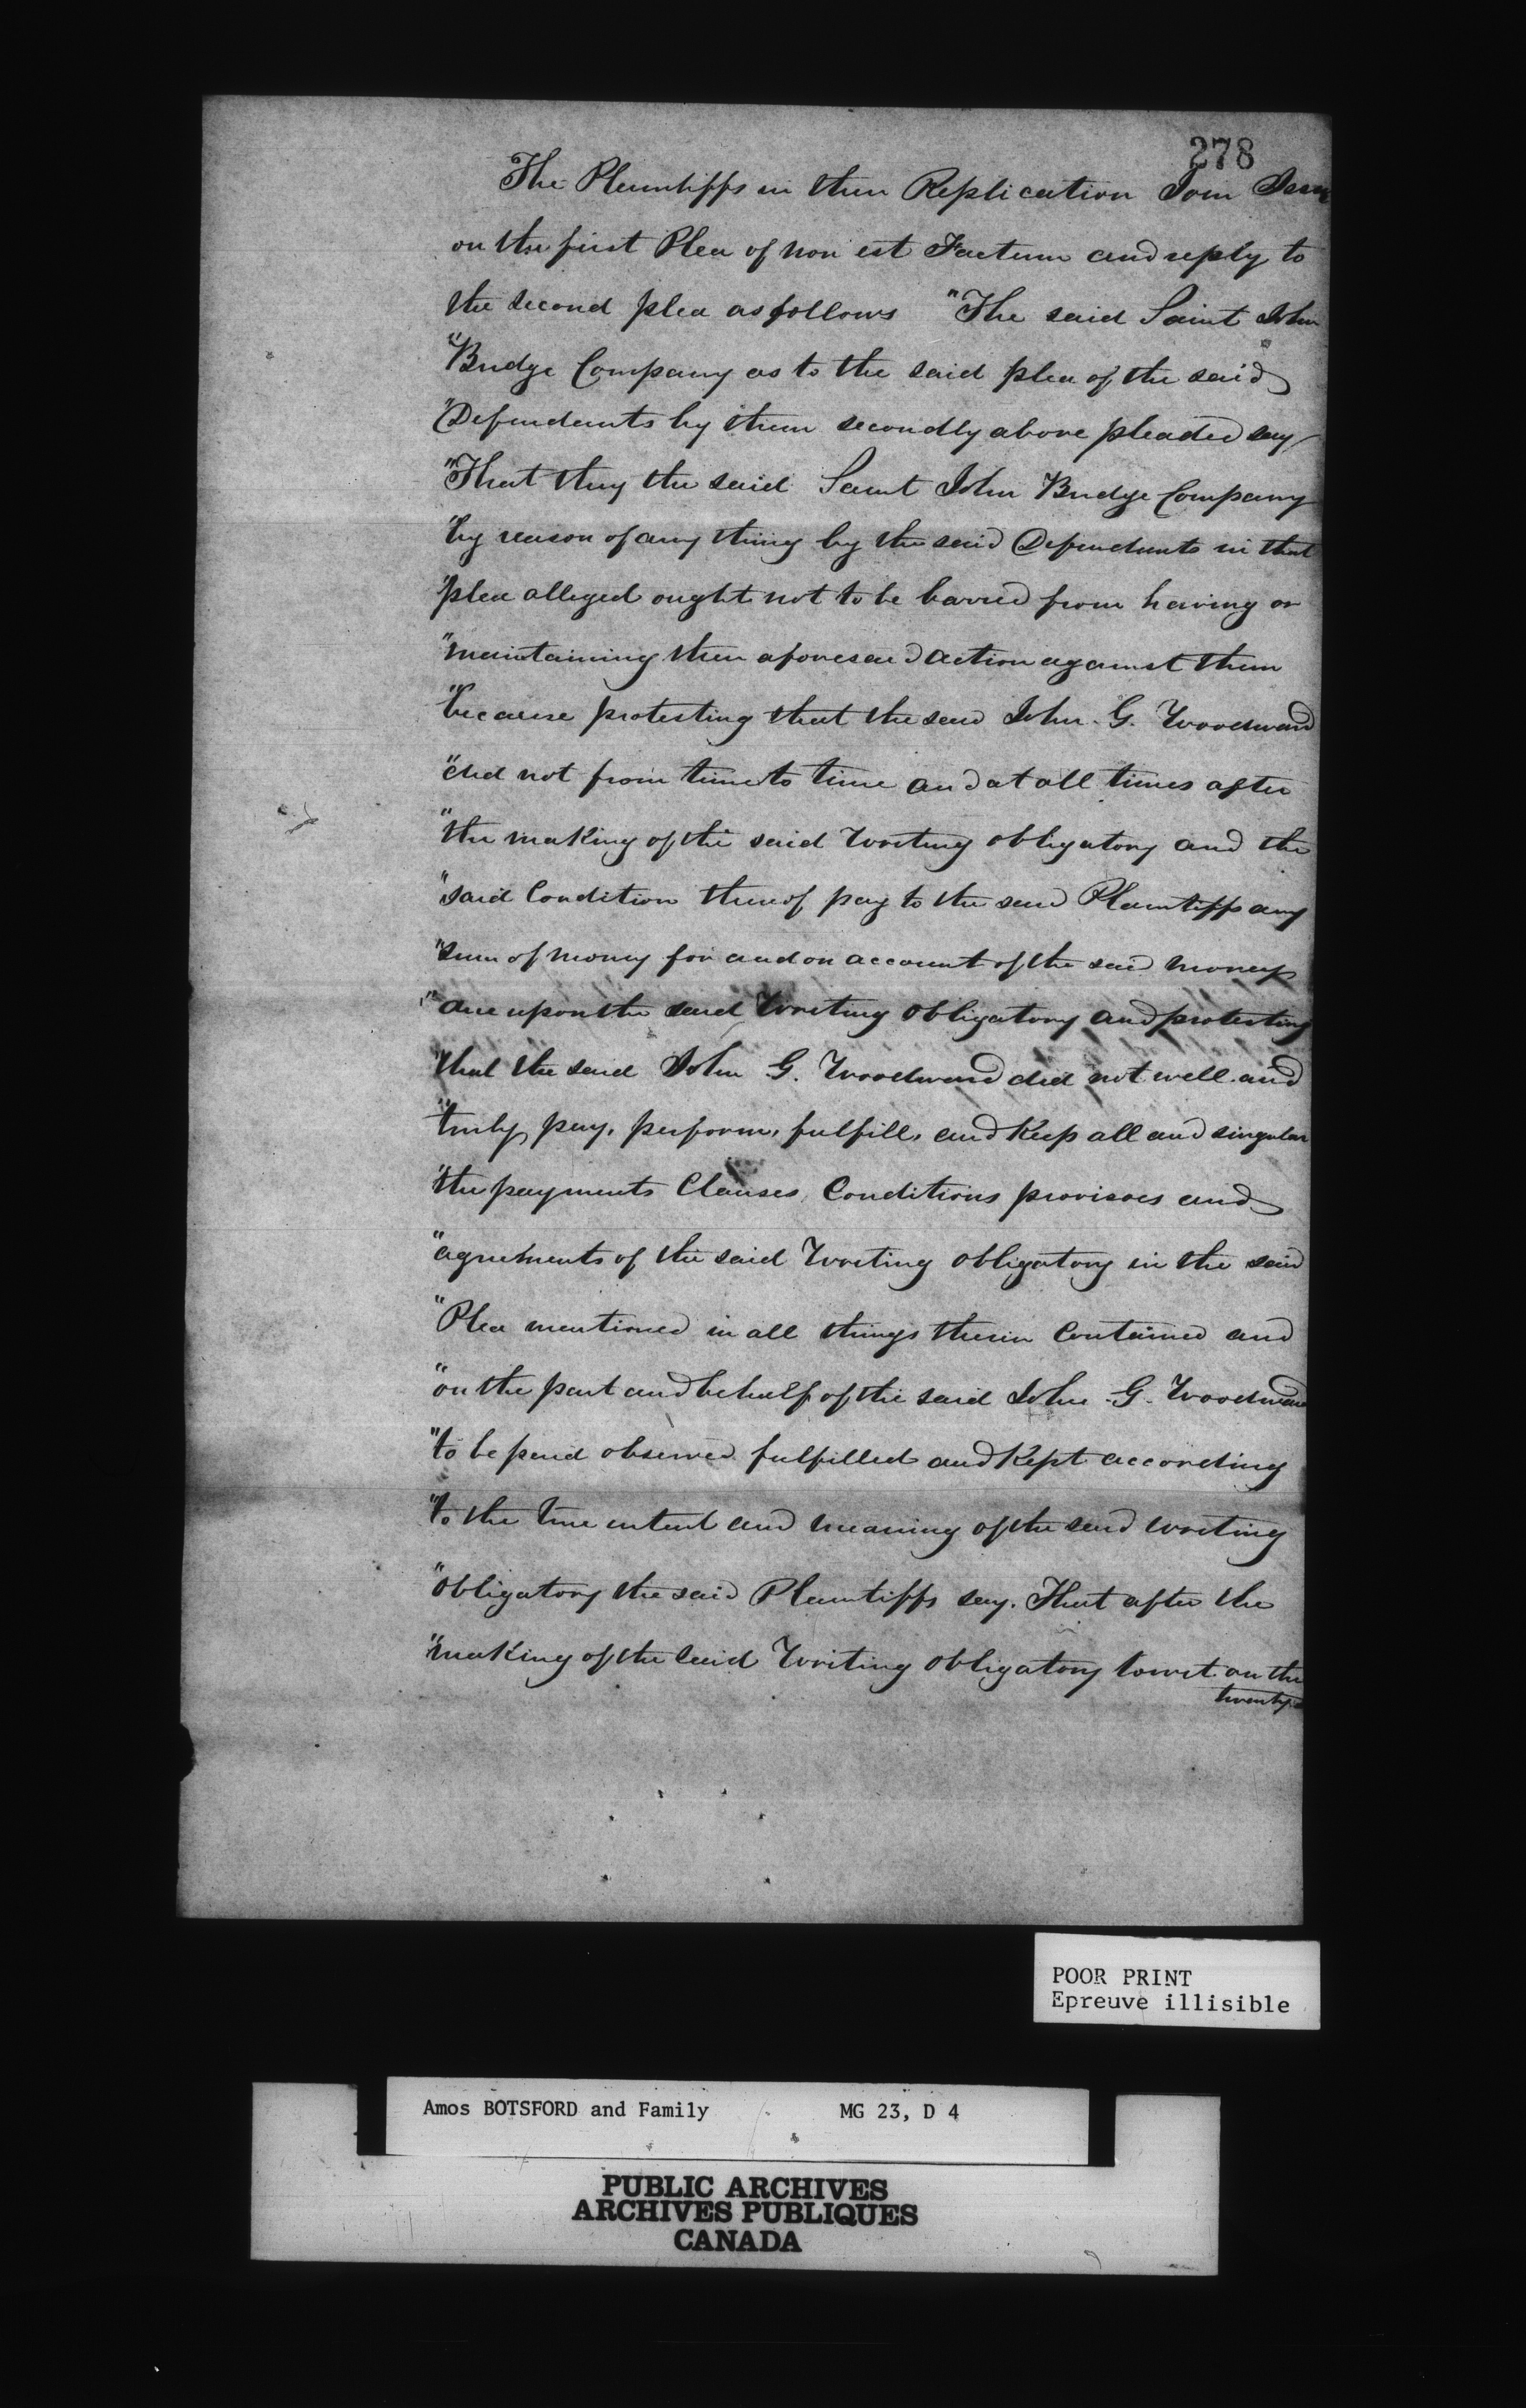 278
The Plaintiffs in their Replication Join Issue
on the first Plea of non est Factum and reply to
the second plea as follows "The said Saint John
"Bridge Company as to the said plea of the said
"Defendants by them secondly above pleaded say
"That they the said Saint John Bridge Company
"by reason of any thing by the said Defendants in that
"plea alleged ought not to be barred from having or
"maintaining their aforesaid action against them
"because protesting that the said John G. Woodward
"did not from time to time and at all times after
"the making of the said Writing obligatory and the
"said Condition thereof pay to the said Plaintiffs any
"sum of money for and on account of the said moneys
"due upon the said Writing obligatory and protesting
"that the said John G. Woodward did not well and
"truly pay, perform, fulfill, and keep all and singular
"the payments Clauses Conditions provisoes and
"agreements of the said Writing obligatory in the said
"Plea mentioned in all things therein Contained and
"on the part and behalf of the said John G. Woodward
"to be paid observed fulfilled and Kept according
"to the true intent and meaning of the said writing
"obligatory the said Plaintiffs say. That after the
"making of the said Writing obligatory towit on the
twenty
POOR PRINT
Epreuve illisible
Amos BOTSFORD and Family MG 23, D 4
PUBLIC ARCHIVES
ARCHIVES PUBLIQUES
CANADA